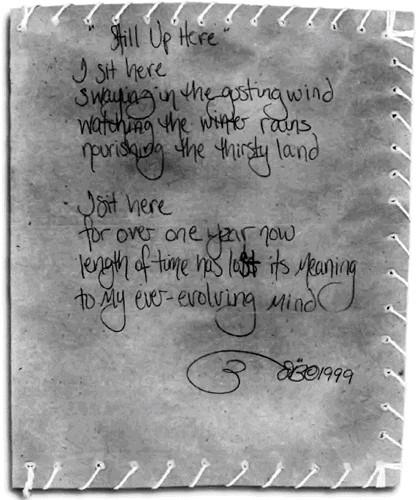 "Still Up Here"
I sit here
swaying in the gusting wind
watching the winter rains
nourishing the thirsty land
I sit here
for over one year now
length of time has lost its meaning
to my ever-evolving mind
©1999